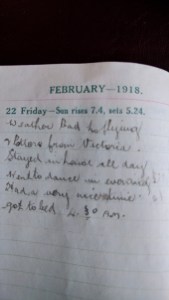 FEBRUARY—1918.
22 Friday—Sun rises 7.4, sets 5.24.
Weather Bad no flying
from Victoria.
Stayed in house all day
Went to dance in evening
Had a very nice time
got to bed 4.30 am.